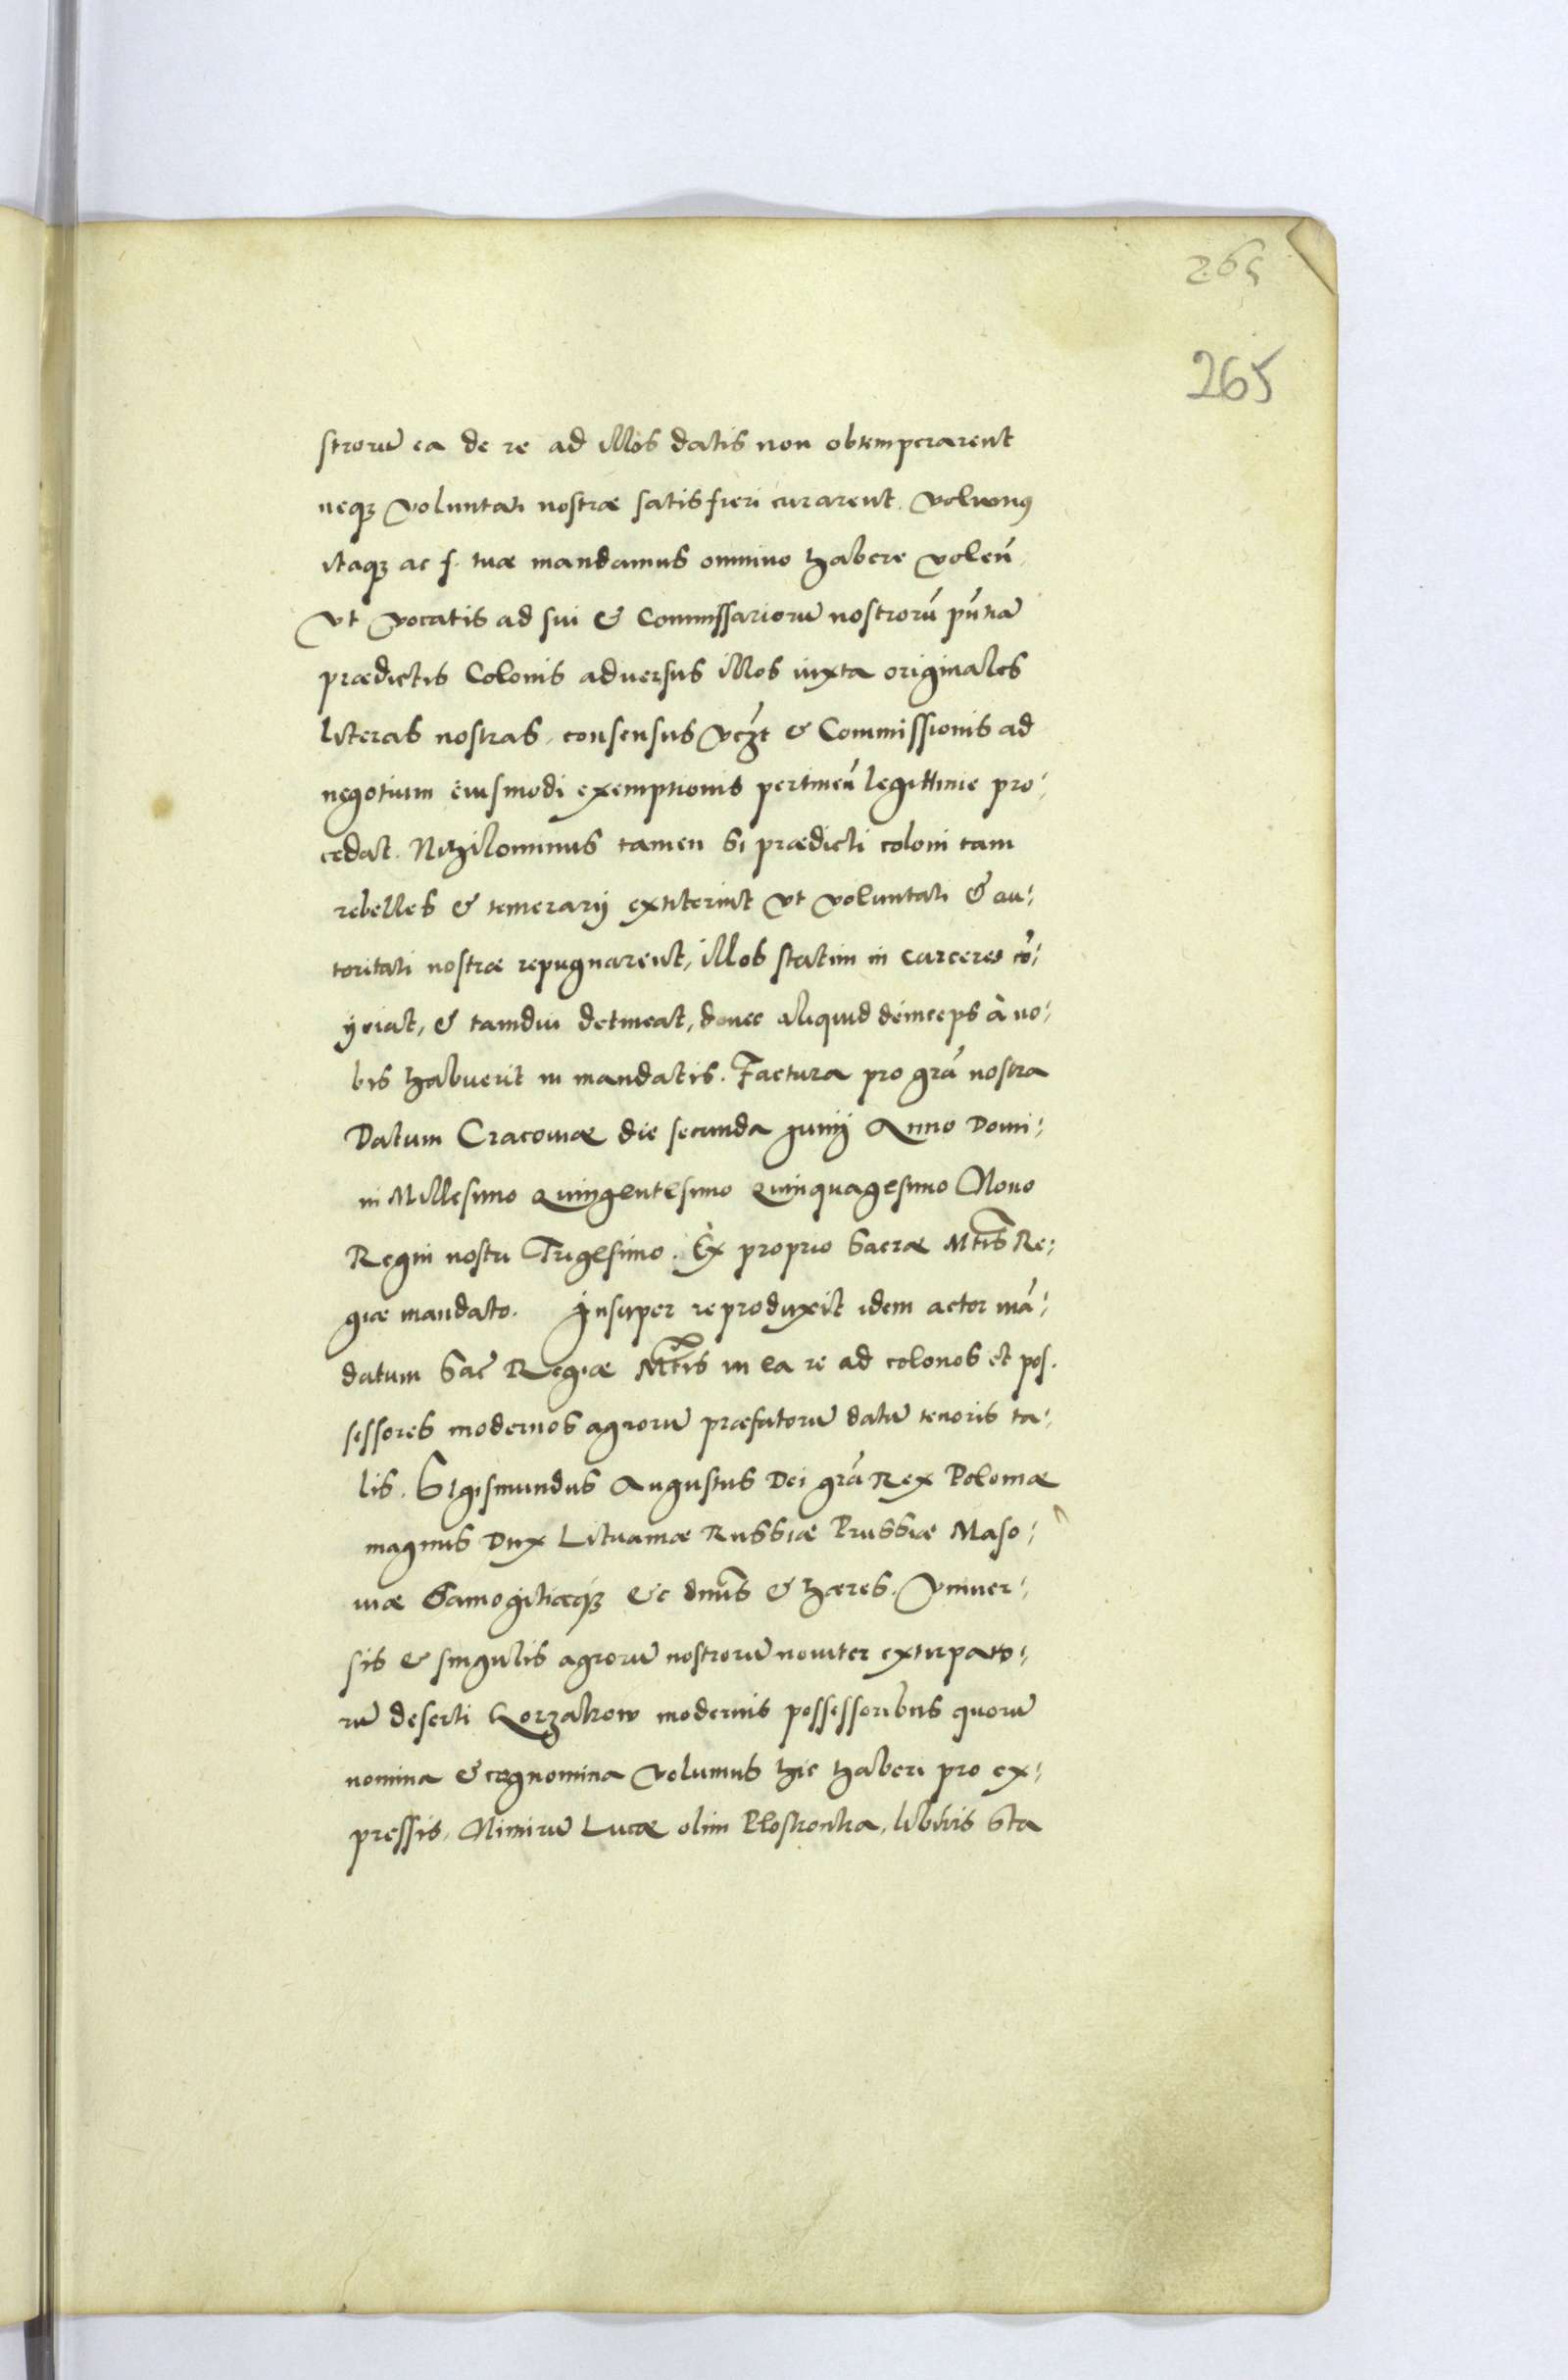 265
265
strorū ea de re ad illos datis non obtemperarent
neq₃ voluntati nostræ satisfieri curarent. volumus
itaq₃ ac f. tuæ mandamus omnino habere voleñ.
vt vocatis ad sui & Commissariorū nostrorū pñtiā
prædictis Colonis adversus illos iuxta originales
literas nostras, consensus vcꝫt & Commissionis ad
negotium eiusmodi exemptionis pertineñ legittime pro:
cedat. Nihilominus tamen si prædicti coloni tam
rebelles & temerarij extiterint vt voluntati & au:
toritati nostræ repugnarent, illos statim in carceres cō:
ijciat, & tamdiu detineat, donec aliquid deinceps à no:
bis habuerit in mandatis. Factura pro grā nostra
Datum Cracoviæ die secunda Junij Anno Domi:
ni Millesimo Quingentesimo Quinquagesimo Nono
Regni nostri Trigesimo. Ex proprio Sacræ Mtis Re:
giæ mandato. Insuper reproduxit idem actor mā:
datum Sac̄ Regiæ Mtis in ea re ad colonos et pos.
sessores modernos agrorū præfatorū datū tenoris ta:
lis. Sigismundus Augustus Dei grā Rex Poloniæ
magnus Dux Lituaniæ Russiæ Prussiæ Maso:
viæ Samogitiæq₃ &c dnūs & hæres. Vniver:
sis & singulis agrorū nostrorū noviter extirpato:
rū deserti Korzakow modernis possessoribus quorū
nomina & cognomina volumus hic haberi pro ex:
pressis, Nimirū Lucæ olim Ploskonka, liberis Sta